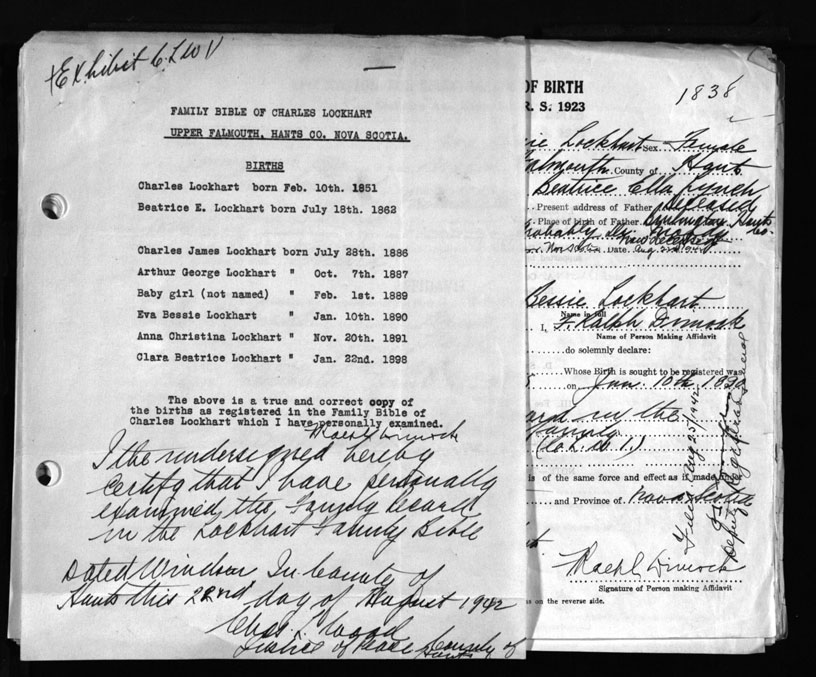 +Exhibit 6. L W V
FAMILY BIBLE OF CHARLES LOCKHART
UPPER FALMOUTH, HANTS CO. NOVA SCOTIA.
BIRTHS
Charles Lockhart born Feb. 10th. 1851
Beatrice E. Lockhart born July 18th. 1862
Charles James Lockhart born July 28th. 1886
Arthur George Lockhart " Oct. 7th. 1887
Baby girl (not named) " Feb. 1st. 1889
Eva Bessie Lockhart " Jan. 10th. 1890
Anna Christina Lockhart " Nov. 20th. 1891
Clara Beatrice Lockhart " Jan. 22nd. 1898
The above is a true and correct copy of
the births as registered in the Family Bible of
Charles Lockhart which I have personally examined.
Ralph Dimock
I the undersigned hereby
Certify that I have personally
examined the Family Record
in the Lockhart Family Bible
Dated Windsor In County of
Hants this 22nd day of August 1942
Chas. Wood
Justice of Peace County of
Hants
OF BIRTH
R. S. 1923
1838
sie Lockhart Sex Female
almouth County of Hants
Beatrice Ella Lynch
Present address of Father deceased
Place of birth of Father Hants Co.
now deceased
Nova Scotia Date Aug 22nd 1942
Bessie Lockhart
Name in full
I, F. Ralph Dimock
Name of Person Making Affidavit
do solemnly declare:
Whose Birth is sought to be registered was
on Jan. 10th 1890
ard in the
County
(L. W. V.)
is of the same force and effect as if made under
and Province of Nova Scotia
Ralph Dimock
Signature of Person making Affidavit
s on the reverse side.
Filed Aug 25/1942
Deputy Registrar General